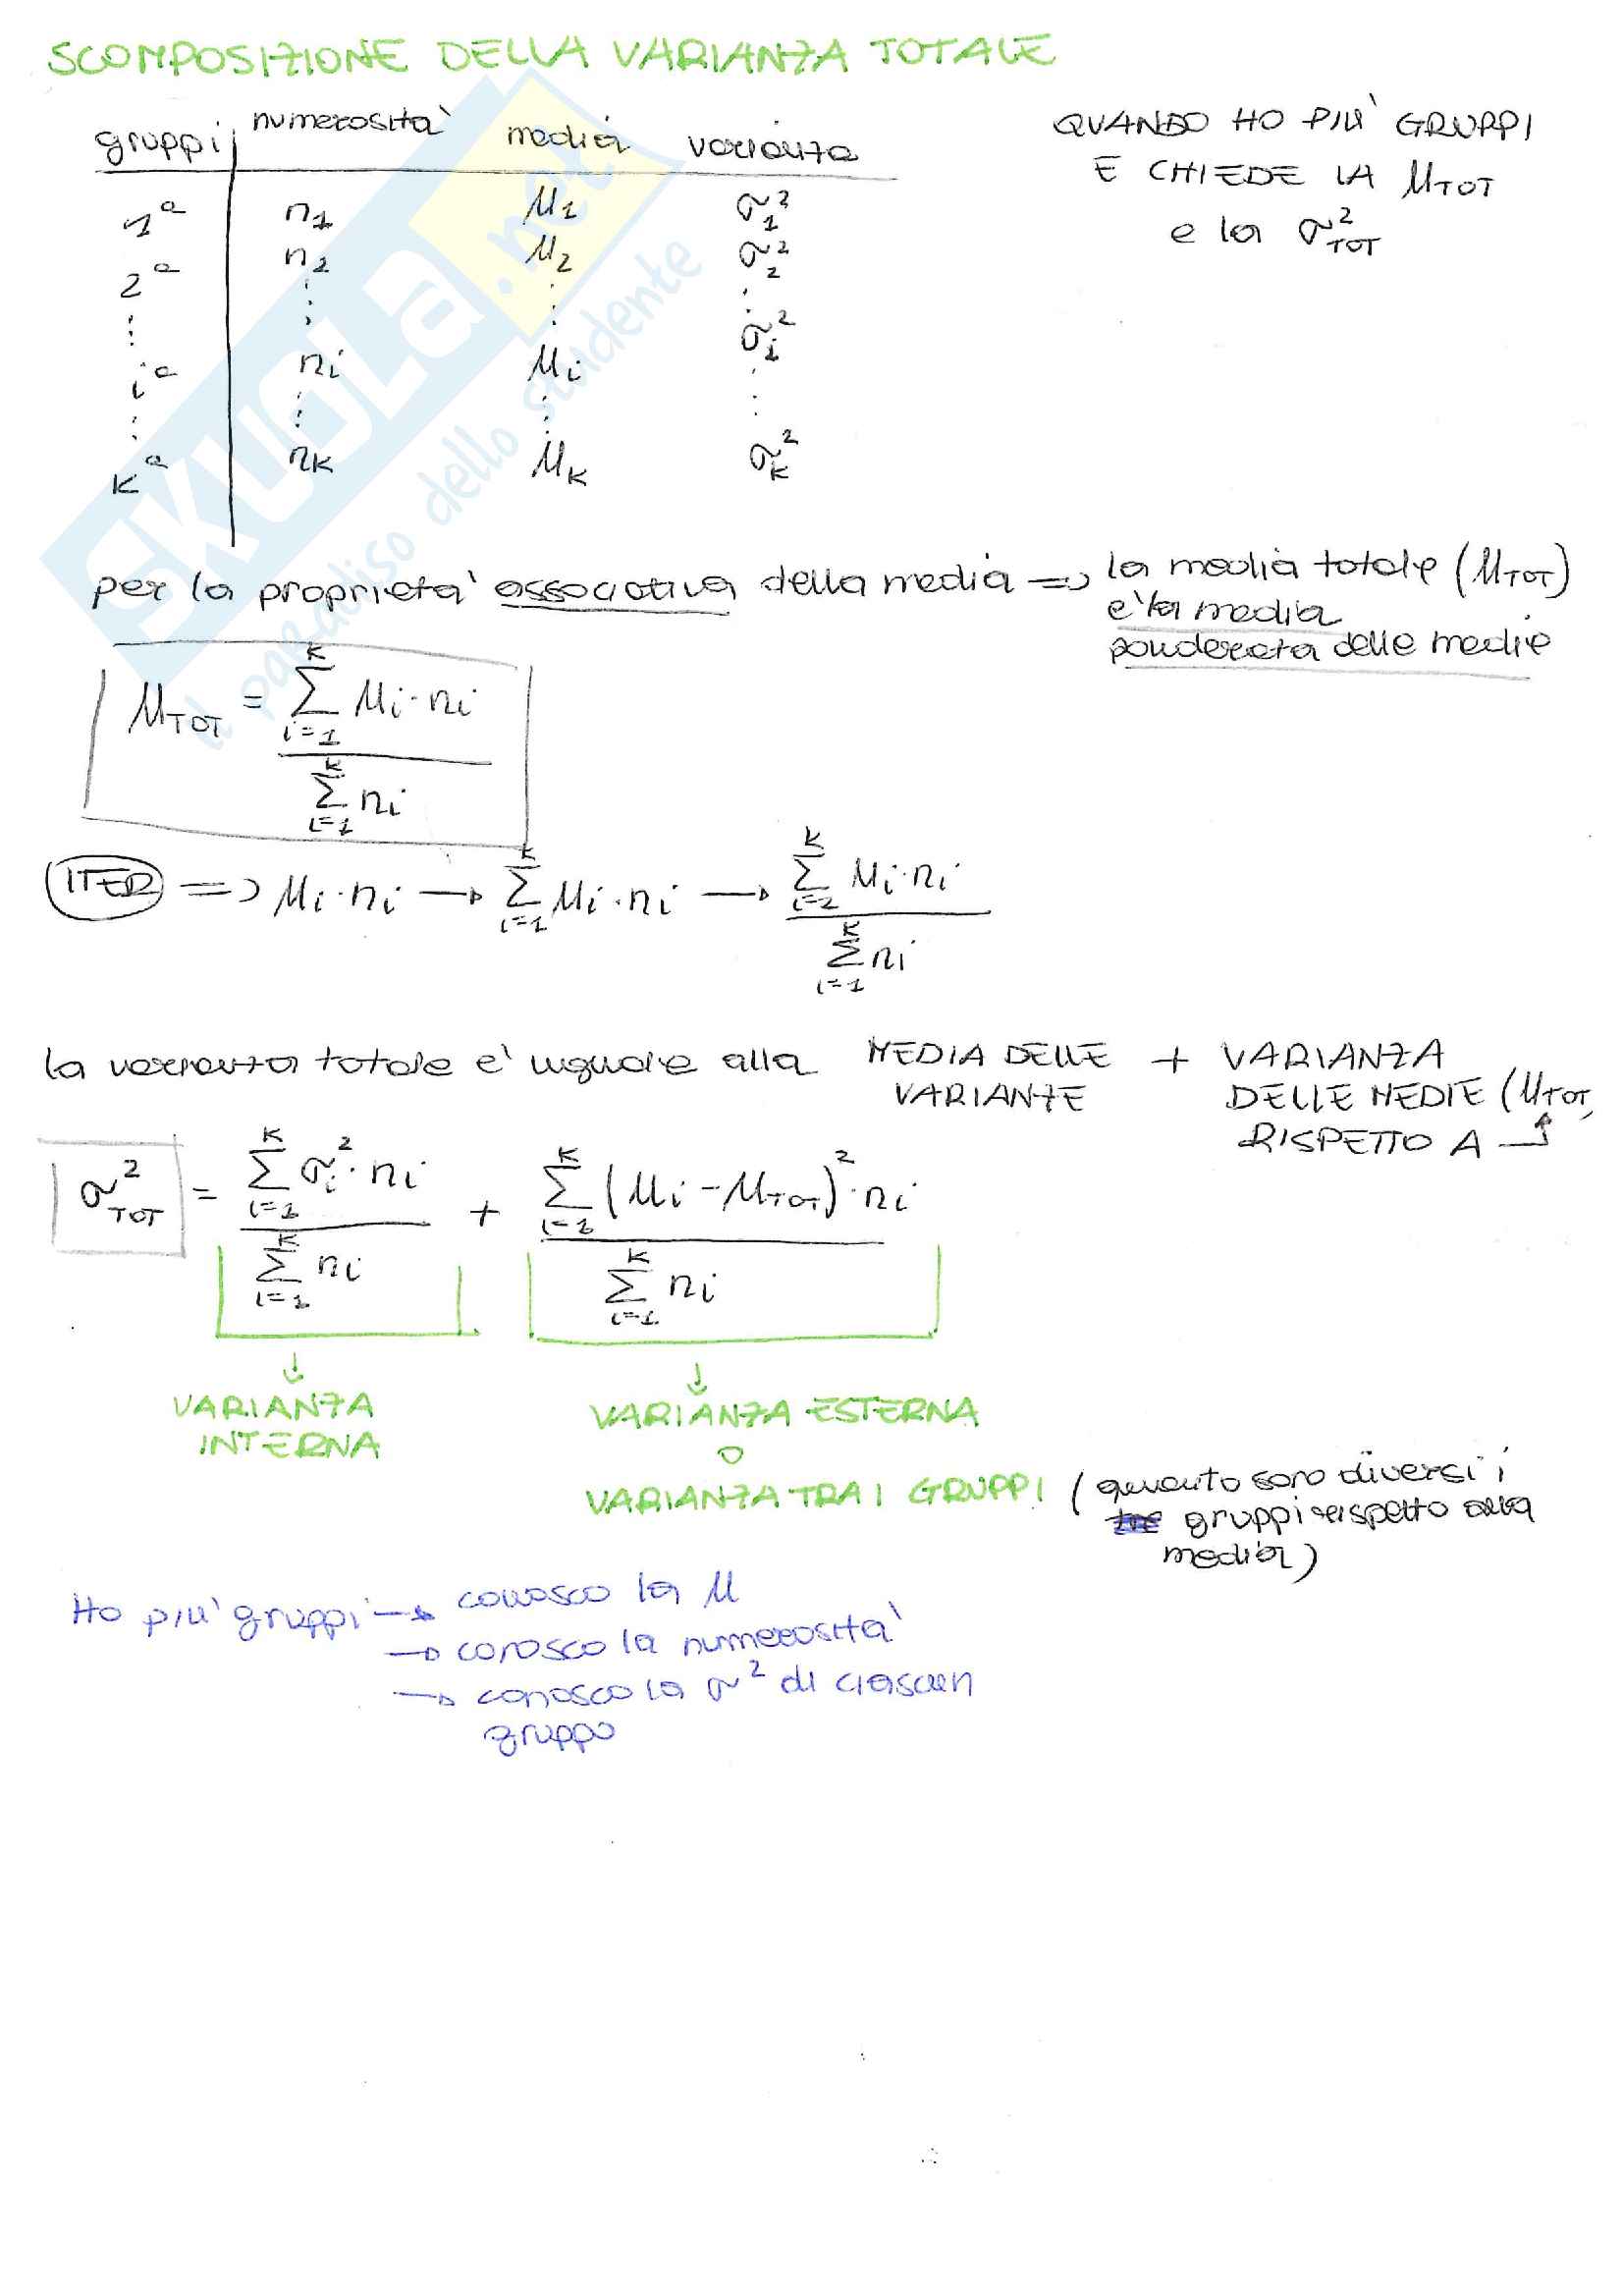 SCOMPOSIZIONE DELLA VARIANZA TOTALE
gruppi numerosità media varianza
1ª n₁ μ₁ σ₁²
2ª n₂ μ₂ σ₂²
⋮ ⋮ ⋮ ⋮
iª nᵢ μᵢ σᵢ²
⋮ ⋮ ⋮ ⋮
Kª nK μK σK²
QUANDO HO PIÙ GRUPPI
E CHIEDE LA μTOT
e la σ²TOT
per la proprietà associativa della media => la media totale (μTOT)
è la media
ponderata delle medie
μTOT = Σᵢ₌₁ᴷ μᵢ·nᵢ / Σᵢ₌₁ᴷ nᵢ
ITER => μᵢ·nᵢ → Σᵢ₌₁ᴷ μᵢ·nᵢ → Σᵢ₌₁ᴷ μᵢ·nᵢ / Σᵢ₌₁ᴷ nᵢ
la varianza totale è uguale alla MEDIA DELLE + VARIANZA
VARIANZE DELLE MEDIE (μTOT,
RISPETTO A
σ²TOT = Σᵢ₌₁ᴷ σᵢ²·nᵢ / Σᵢ₌₁ᴷ nᵢ + Σᵢ₌₁ᴷ (μᵢ - μTOT)²·nᵢ / Σᵢ₌₁ᴷ nᵢ
VARIANZA
INTERNA
VARIANZA ESTERNA
O
VARIANZA TRA I GRUPPI (quanto sono diversi i
gruppi rispetto alla
media)
Ho più gruppi → conosco la μ
→ conosco la numerosità
→ conosco la σ² di ciascun
gruppo
SKUOLA.net
il paradiso dello studente